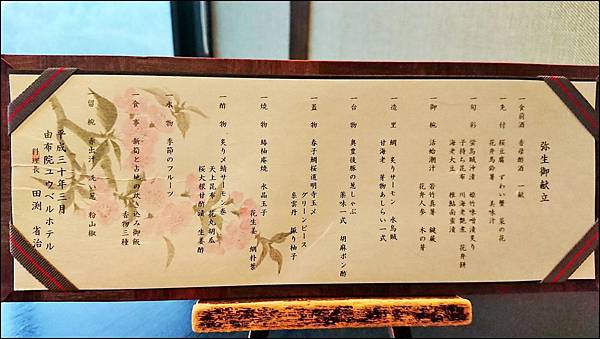 弥生御献立
一 食前酒 香母酢酒 一献
一 先付 桜豆腐 ずわい蟹 菜の花
花弁馬鈴薯 美味汁
一 旬彩 蛍烏賊沖漬 姫竹味噌漬炙り
子持ち昆布 川海老艶煮 花弁餅
海老大豆 椎鮎南蛮漬
一 御椀 活蛤潮汁 若竹真薯 鍵蕨
花弁人参 木の芽
一 造里 鯛 炙りサーモン 水烏賊
甘海老 芽物あしらい一式
一 台物 奥豊後豚の葱しゃぶ
薬味一式 胡麻ポン酢
一 蓋物 春子鯛桜道明寺玉〆
グリーンピース
泉雲丹 振り柚子
一 焼物 鰆柚庵焼 水晶玉子
花生姜 鯛朴葉
一 酢物 炙り〆鯖サーモン巻
天上昆布 花丸胡瓜
桜大根甘酢漬 生姜酢
一 水物 季節のフルーツ
一 食事 新筍と占地の炊き込み御飯
香物三種
留椀 赤出汁 洗い葱 粉山椒
平成三十年三月
由布院ユウベルホテル
料理長 田渕 省治